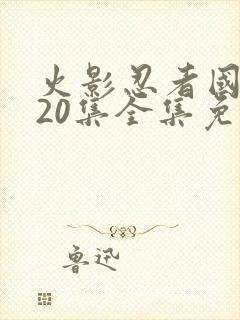 火影忍者國
20集全集免
鲁迅